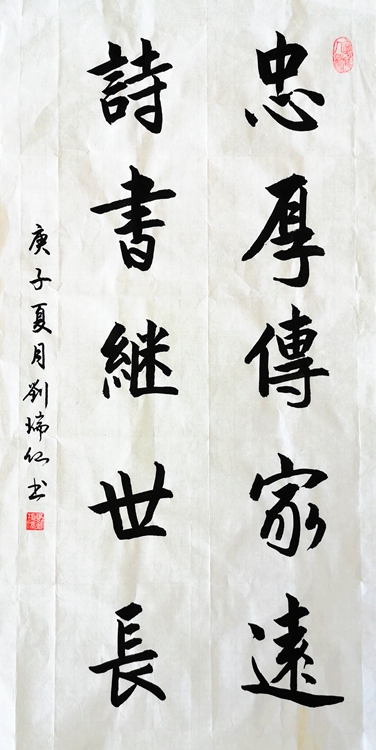 忠厚傳家遠
詩書继世長
庚子夏月劉瑞仁书